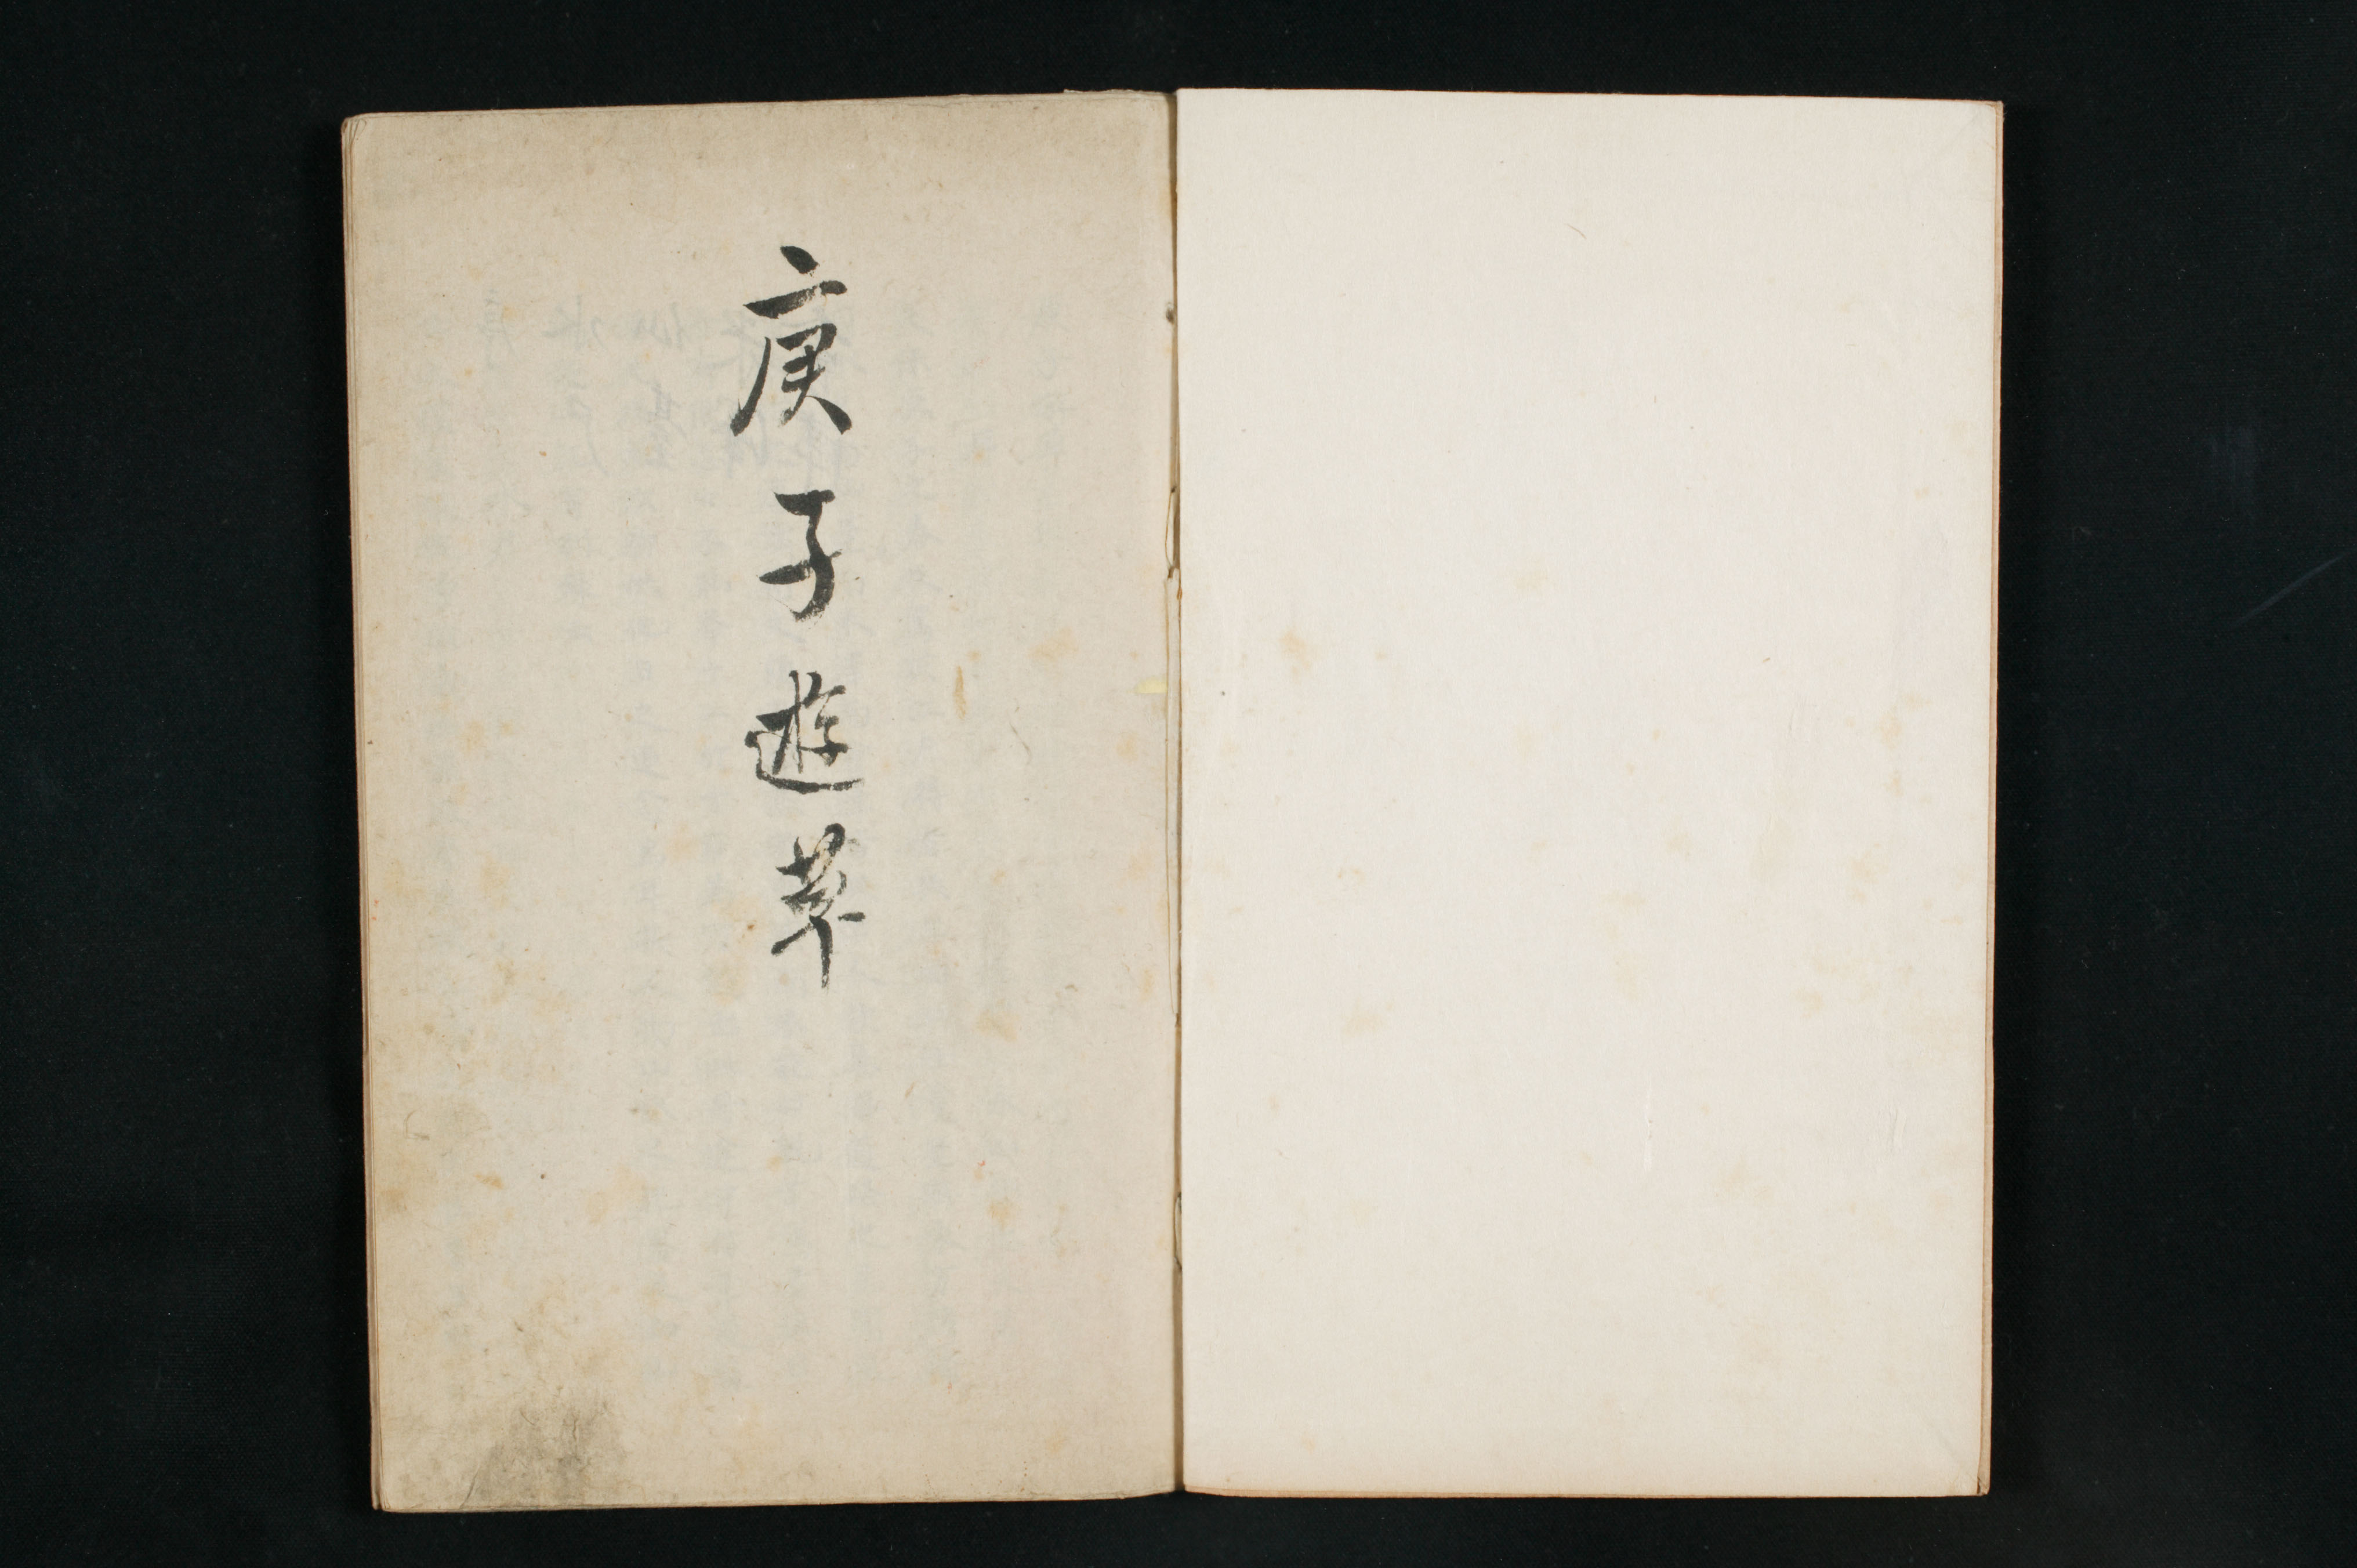 庚子遊草